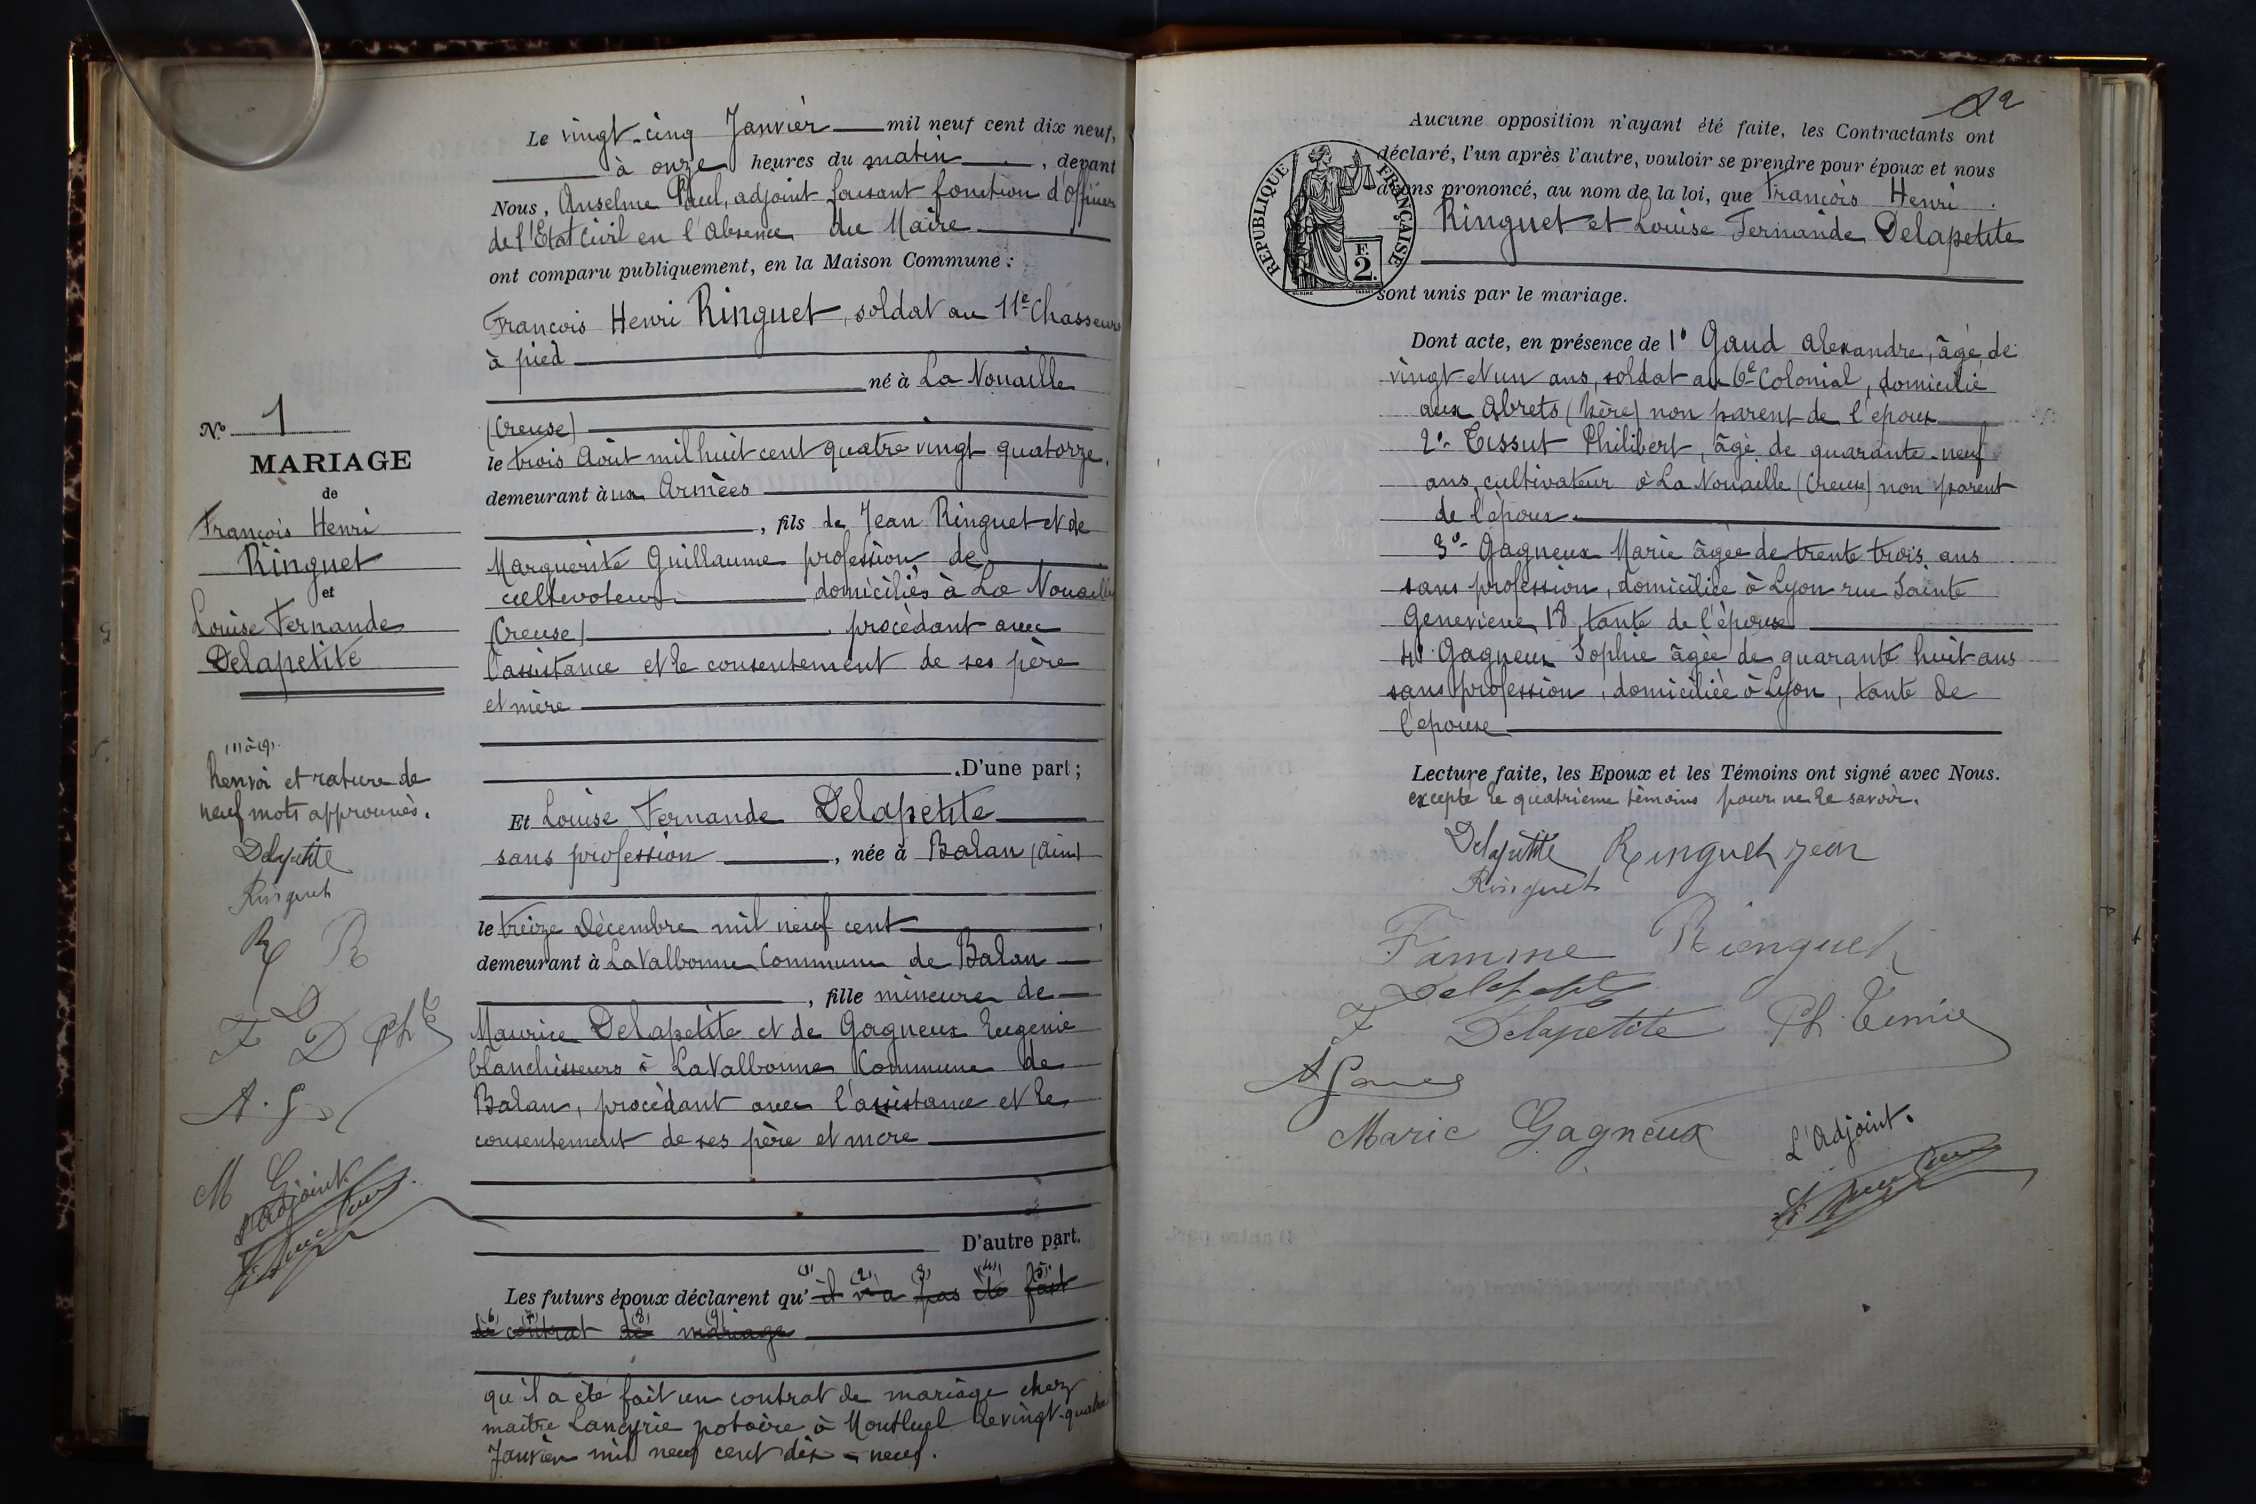 Le vingt-cinq Janvier mil neuf cent dix neuf,
à onze heures du matin, devant
Nous, Anselme Paul, adjoint faisant fonction d'Officier
de l'Etat Civil en l'absence du Maire
ont comparu publiquement, en la Maison Commune :
François Henri Ringuet, soldat au 11e Chasseurs
à pied
né à La Nouaille
(Creuse)
le trois Août mil huit cent quatre vingt quatorze,
demeurant à ux Armées
, fils de Jean Ringuet et de
Marguerite Guillaume profession de
cultivateurs domiciliés à La Nouaille
(Creuse) procédant avec
l'assistance et le consentement de ses père
et mère
D'une part ;
Et Louise Fernande Delapetite
sans profession, née à Balan (Ain)
le treize Décembre mil neuf cent
demeurant à La Valbonne Commune de Balan
, fille mineure de
Maurice Delapetite et de Gagneux Eugenie
blanchisseurs à La Valbonne Commune de
Balan, procédant avec l'assistance et le
consentement de ses père et mère
D'autre part.
Les futurs époux déclarent qu' (1) il (2) n'a (3) pas (4) été (5) fait
(6) de (7) contrat (8) de (9) mariage
qu'il a été fait un contrat de mariage chez
maître Lancyrie notaire à Montluel le vingt-quatre
Janvier mil neuf cent dix-neuf.
No 1
MARIAGE
de
François Henri
Ringuet
et
Louise Fernande
Delapetite
(1) à (9)
Renvoi et rature de
neuf mots approuvés.
Delapetite
Ringuet
R R
D
F D Ph T
A. G
M G
L'adjoint
82
Aucune opposition n'ayant été faite, les Contractants ont
déclaré, l'un après l'autre, vouloir se prendre pour époux et nous
avons prononcé, au nom de la loi, que François Henri
Ringuet et Louise Fernande Delapetite
sont unis par le mariage.
REPUBLIQUE FRANÇAISE
F.
2.
Dont acte, en présence de 1° Gaud Alexandre, âgé de
vingt et un ans, soldat au 6e Colonial, domicilié
aux Abrets (Isère) non parent de l'époux
2°- Tissut Philibert, âgé de quarante-neuf
ans, cultivateur à La Nouaille (Creuse) non parent
de l'époux
3°- Gagneux Marie âgée de trente trois ans
sans profession, domiciliée à Lyon rue Sainte
Genevieve 18, tante de l'épouse
4° Gagneux Sophie âgée de quarante huit ans
sans profession, domiciliée à Lyon, tante de
l'epouse
Lecture faite, les Epoux et les Témoins ont signé avec Nous.
excepté le quatrième témoins pour ne le savoir.
Delapetite Ringuet jean
Ringuet
Famme Rienguet
F Delapetite
Marie Gagneux
L'adjoint.